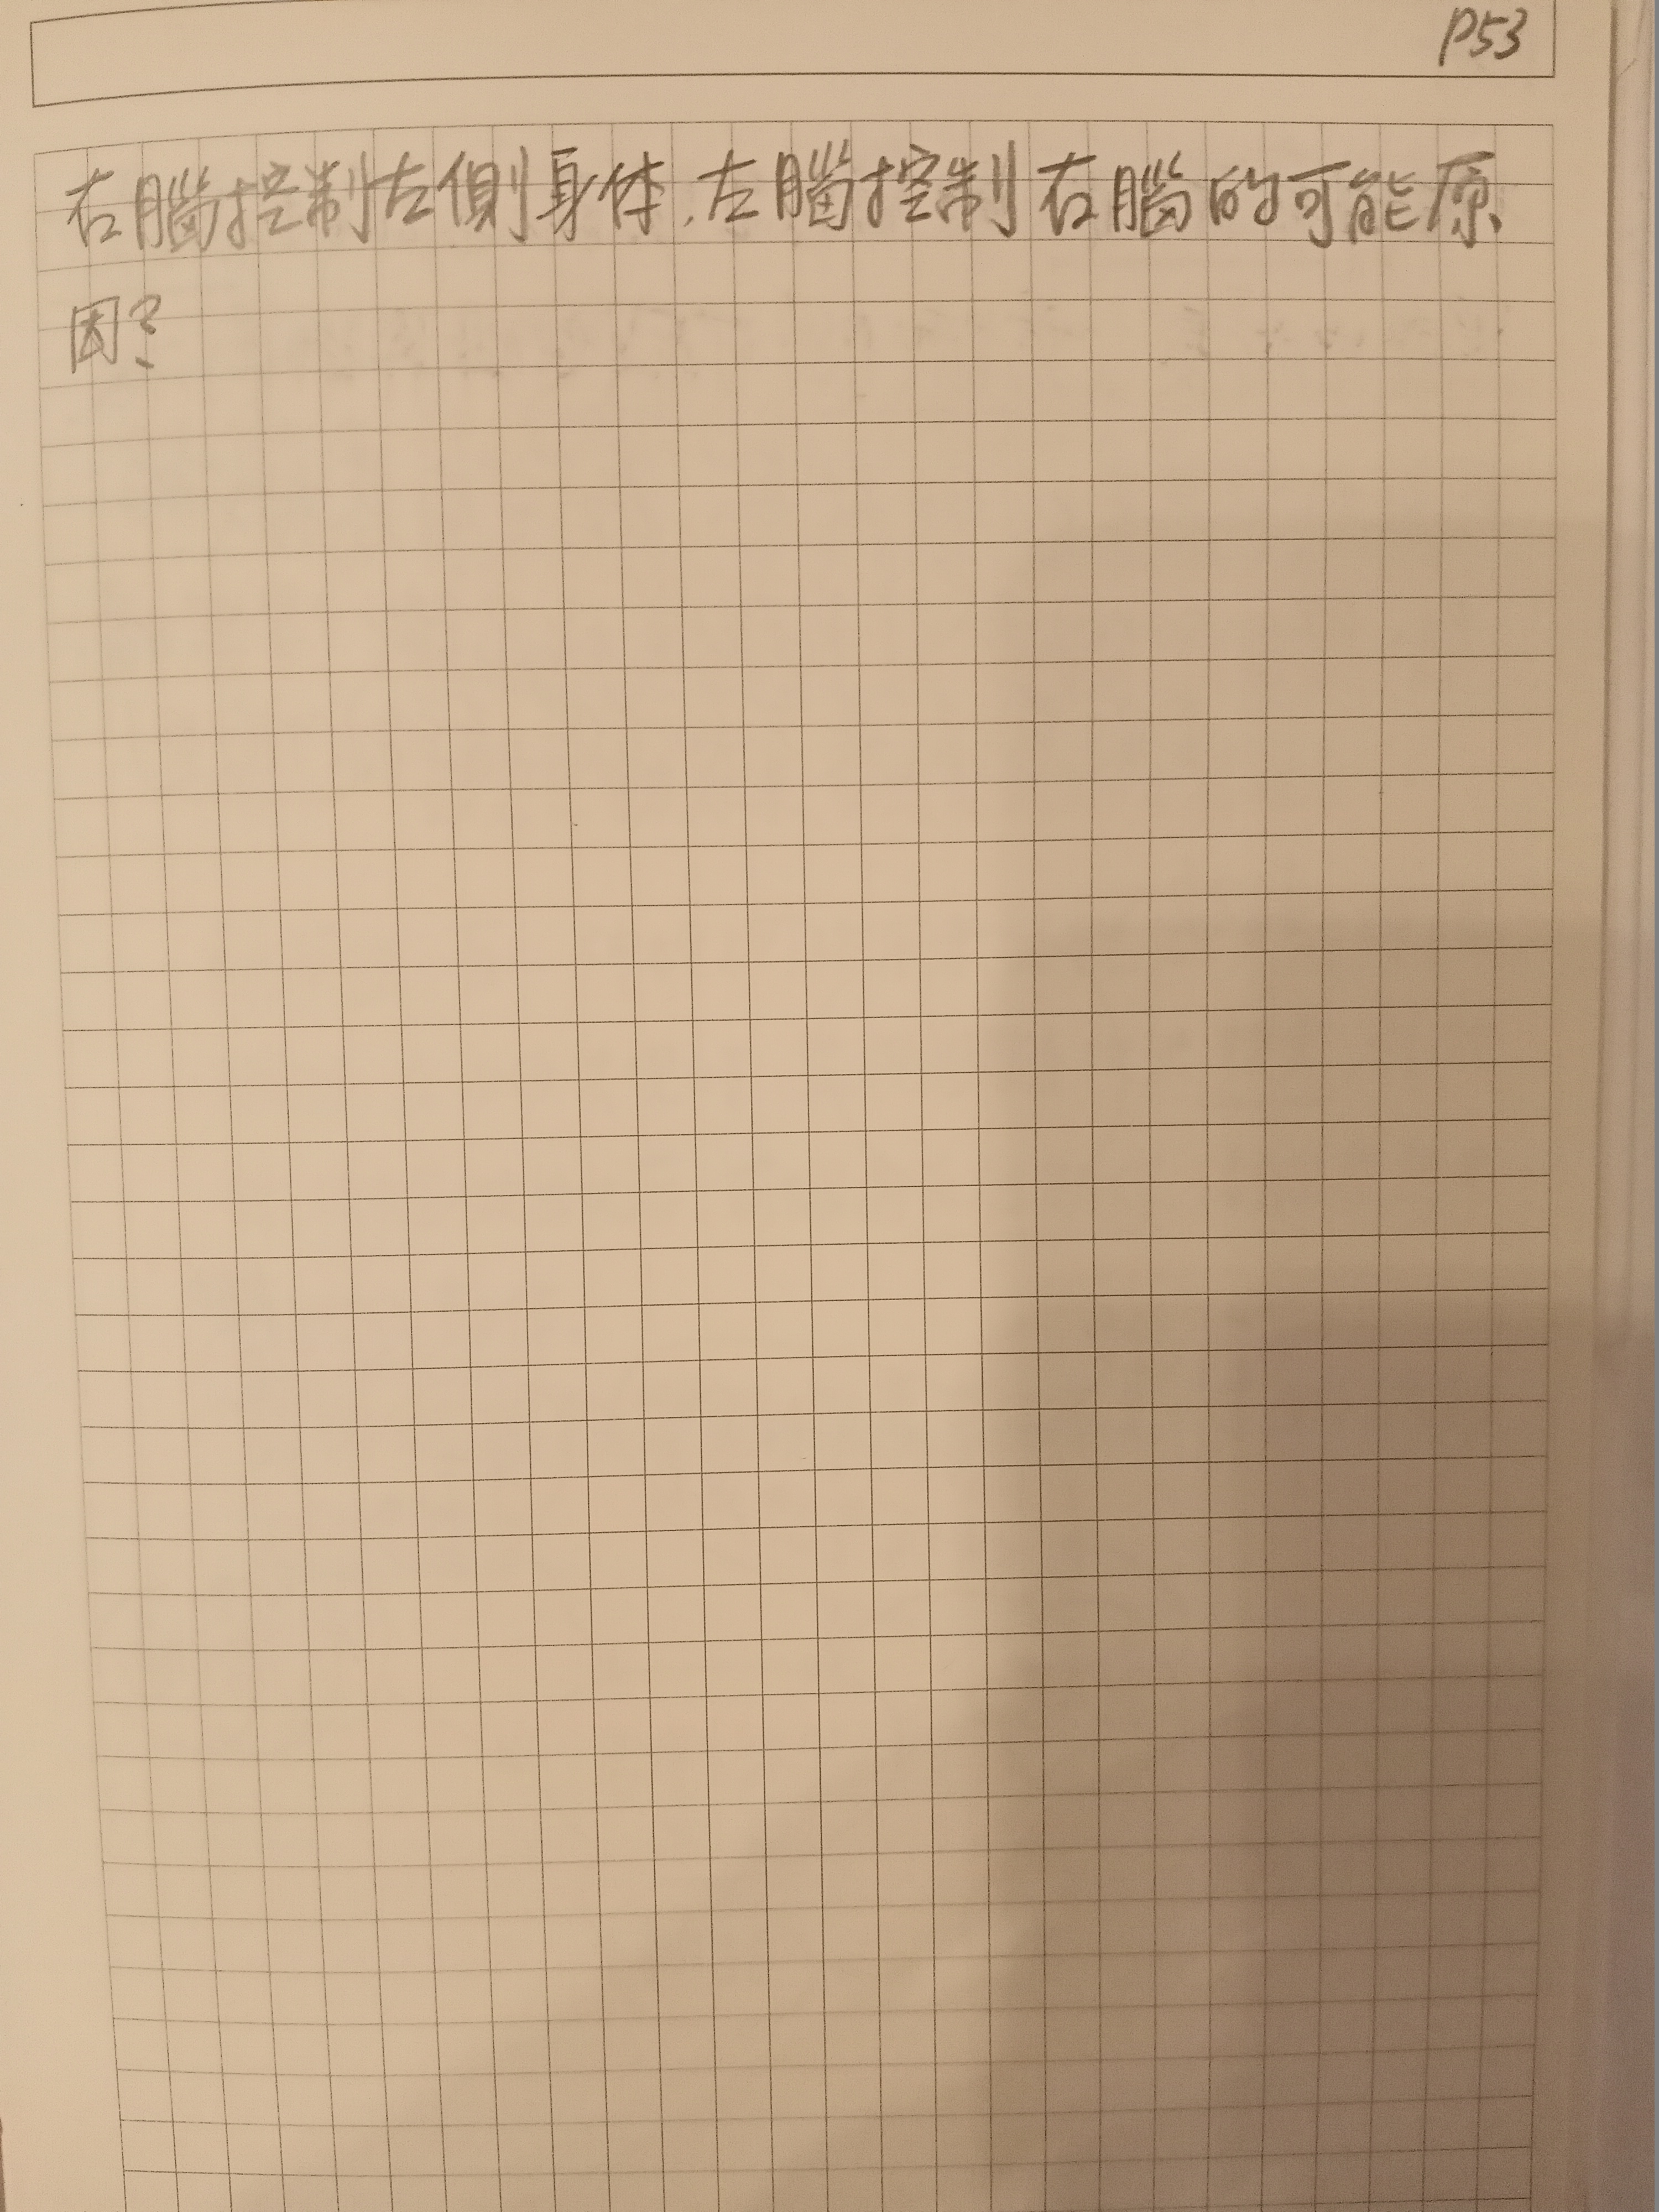 P53
右腦控制左側身体,左腦控制右腦的可能原
因?